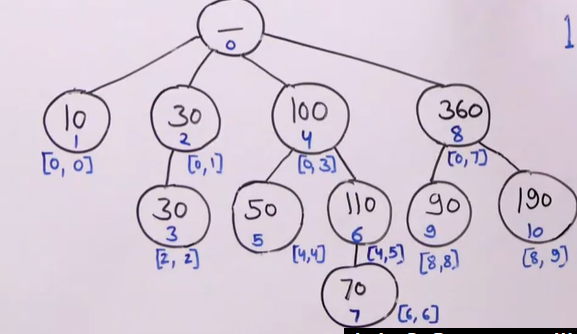 —
0
1
10
1
[0, 0]
30
2
[0, 1]
100
4
[0, 3]
360
8
[0, 7]
30
3
[2, 2]
50
5
[4,4]
110
6
[4,5]
90
9
[8,8]
190
10
[8, 9]
70
7
[6,6]